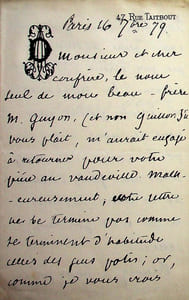 47, RUE TAITBOUT
Paris 16 9bre 79.
Monsieur et cher
confrère, le nom
seul de mon beau-frère
M. Guyon, (et non Guillon, s'il
vous plaît, m'aurait engagé
à retourner pour votre
pièce au vaudeville. Malh-
eureusement, votre lettre
ne se termine pas comme
se terminent d'habitude
celles des gens polis; or,
comme je vous crois